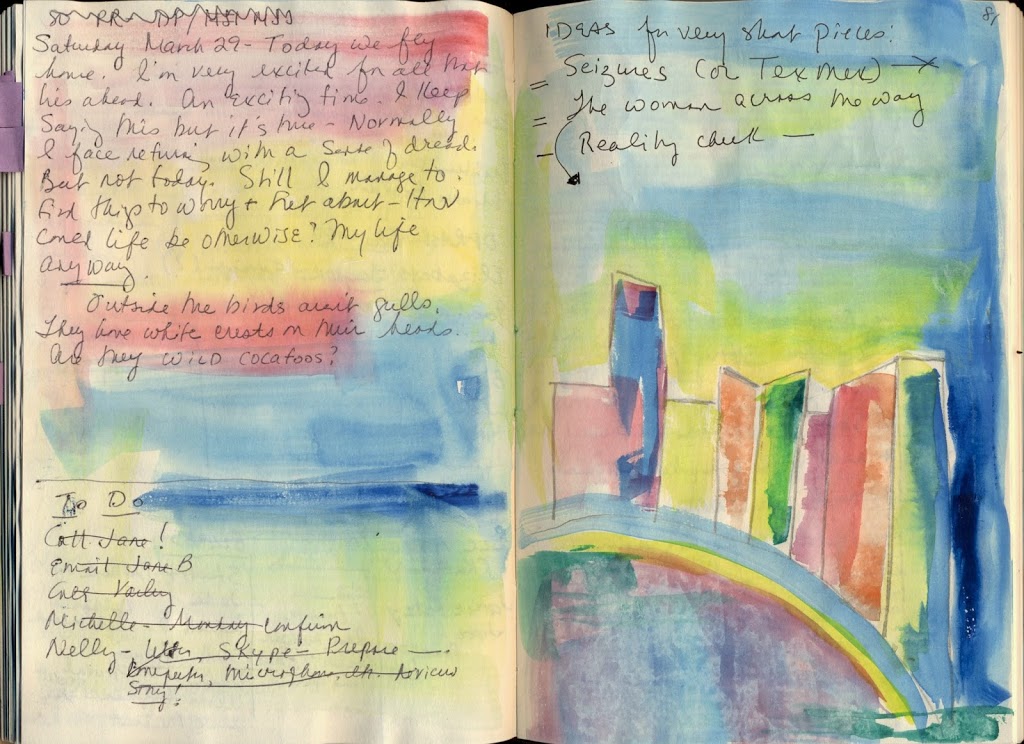 Saturday March 29 - Today we fly
home. I'm very excited for all that
lies ahead. An exciting time. I keep
saying this but it's true - Normally
I face returning with a sense of dread.
But not today. Still I manage to
find things to worry + fret about - How
could life be otherwise? My life
anyway.
Outside the birds await gulls.
They have white crests on their heads.
Are they WILD COCATOOS?
To Do
Call Jane!
Email Jane B
Michelle - Monday confirm
Nelly - Skype - Prepare -
Computer, microphone, etc.
Song!
81
IDEAS for very short pieces:
= Seizures (or TexMex) - x
= The woman across the way
- Reality check -